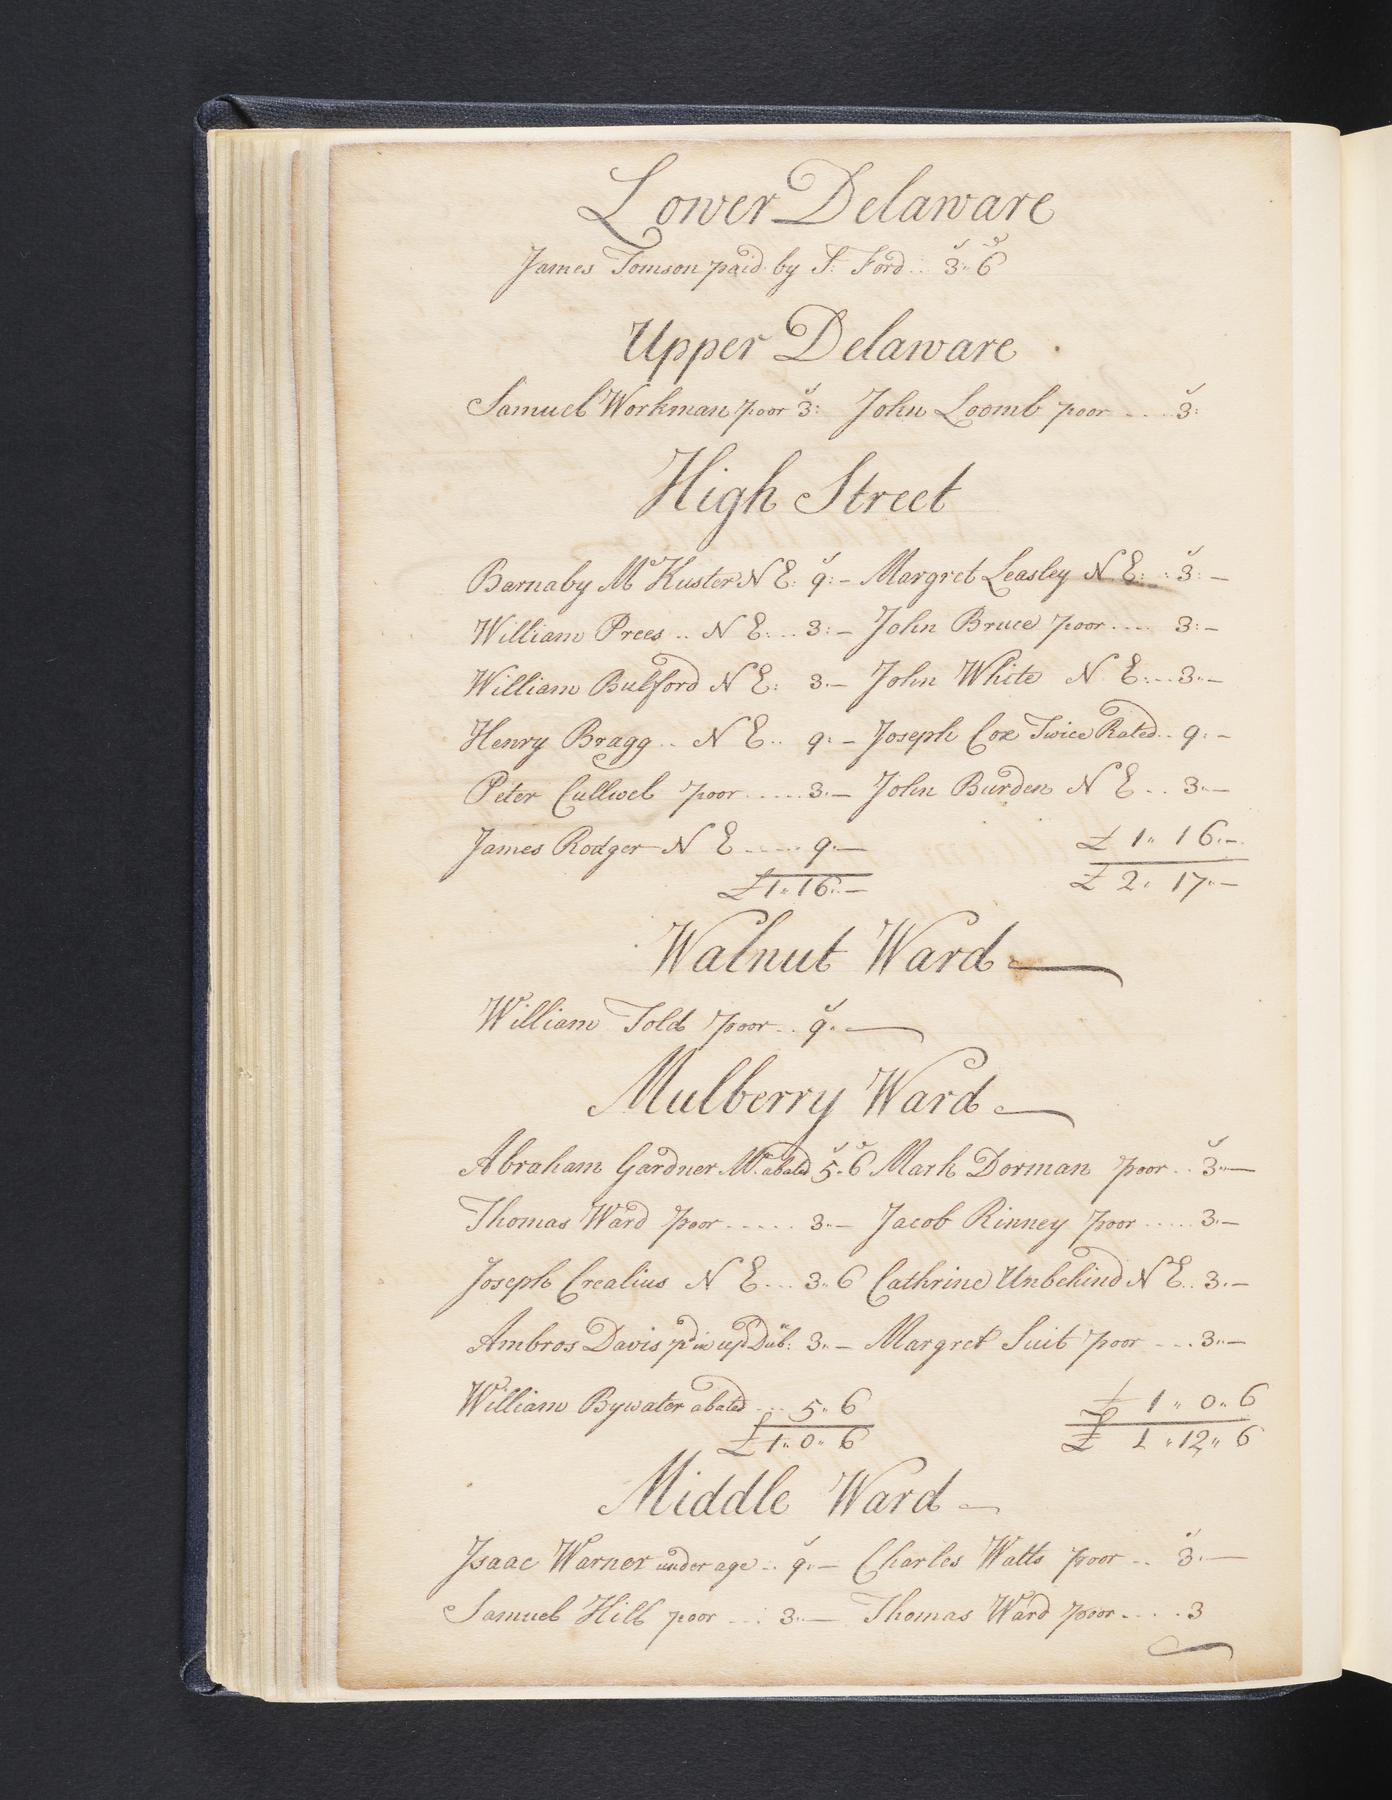 Lower Delaware
James Tomson paid by T: Ford .. 3 " 6
Upper Delaware
Samuel Workman poor 3: John Loomb poor .... 3:
High Street
Barnaby McKuster N E: 9:– Margret Leasley N E: .. 3:–
William Prees .. N E: .. 3:– John Bruce poor .... 3:–
William Bulford N E: 3"– John White N E: .. 3"–
Henry Bragg .. N E .. 9:– Joseph Cox Twice Rated .. 9:–
Peter Cullwel poor ..... 3"– John Burden N E .. 3"–
James Rodger N E ..... 9"– £ 1 " 16 "–
£ 1 " 16 "– £ 2 " 17 "–
Walnut Ward
William Told poor .. 9 "
Mulberry Ward
Abraham Gardner abated 5 " 6 Mark Dorman poor .. 3"–
Thomas Ward poor ..... 3"– Jacob Rinney poor ..... 3"–
Joseph Crealius N E ... 3 " 6 Cathrine Unbehind N E .. 3"–
Ambros Davis pd in up Dub: 3"– Margret Suit poor ... 3"–
William Bywater abated ... 5 " 6 £ 1 " 0 " 6
£ 1 " 0 " 6 £ 1 " 12 " 6
Middle Ward
Isaac Warner under age .. 9"– Charles Watts poor .. 3"–
Samuel Hill poor ... 3"– Thomas Ward poor .... 3